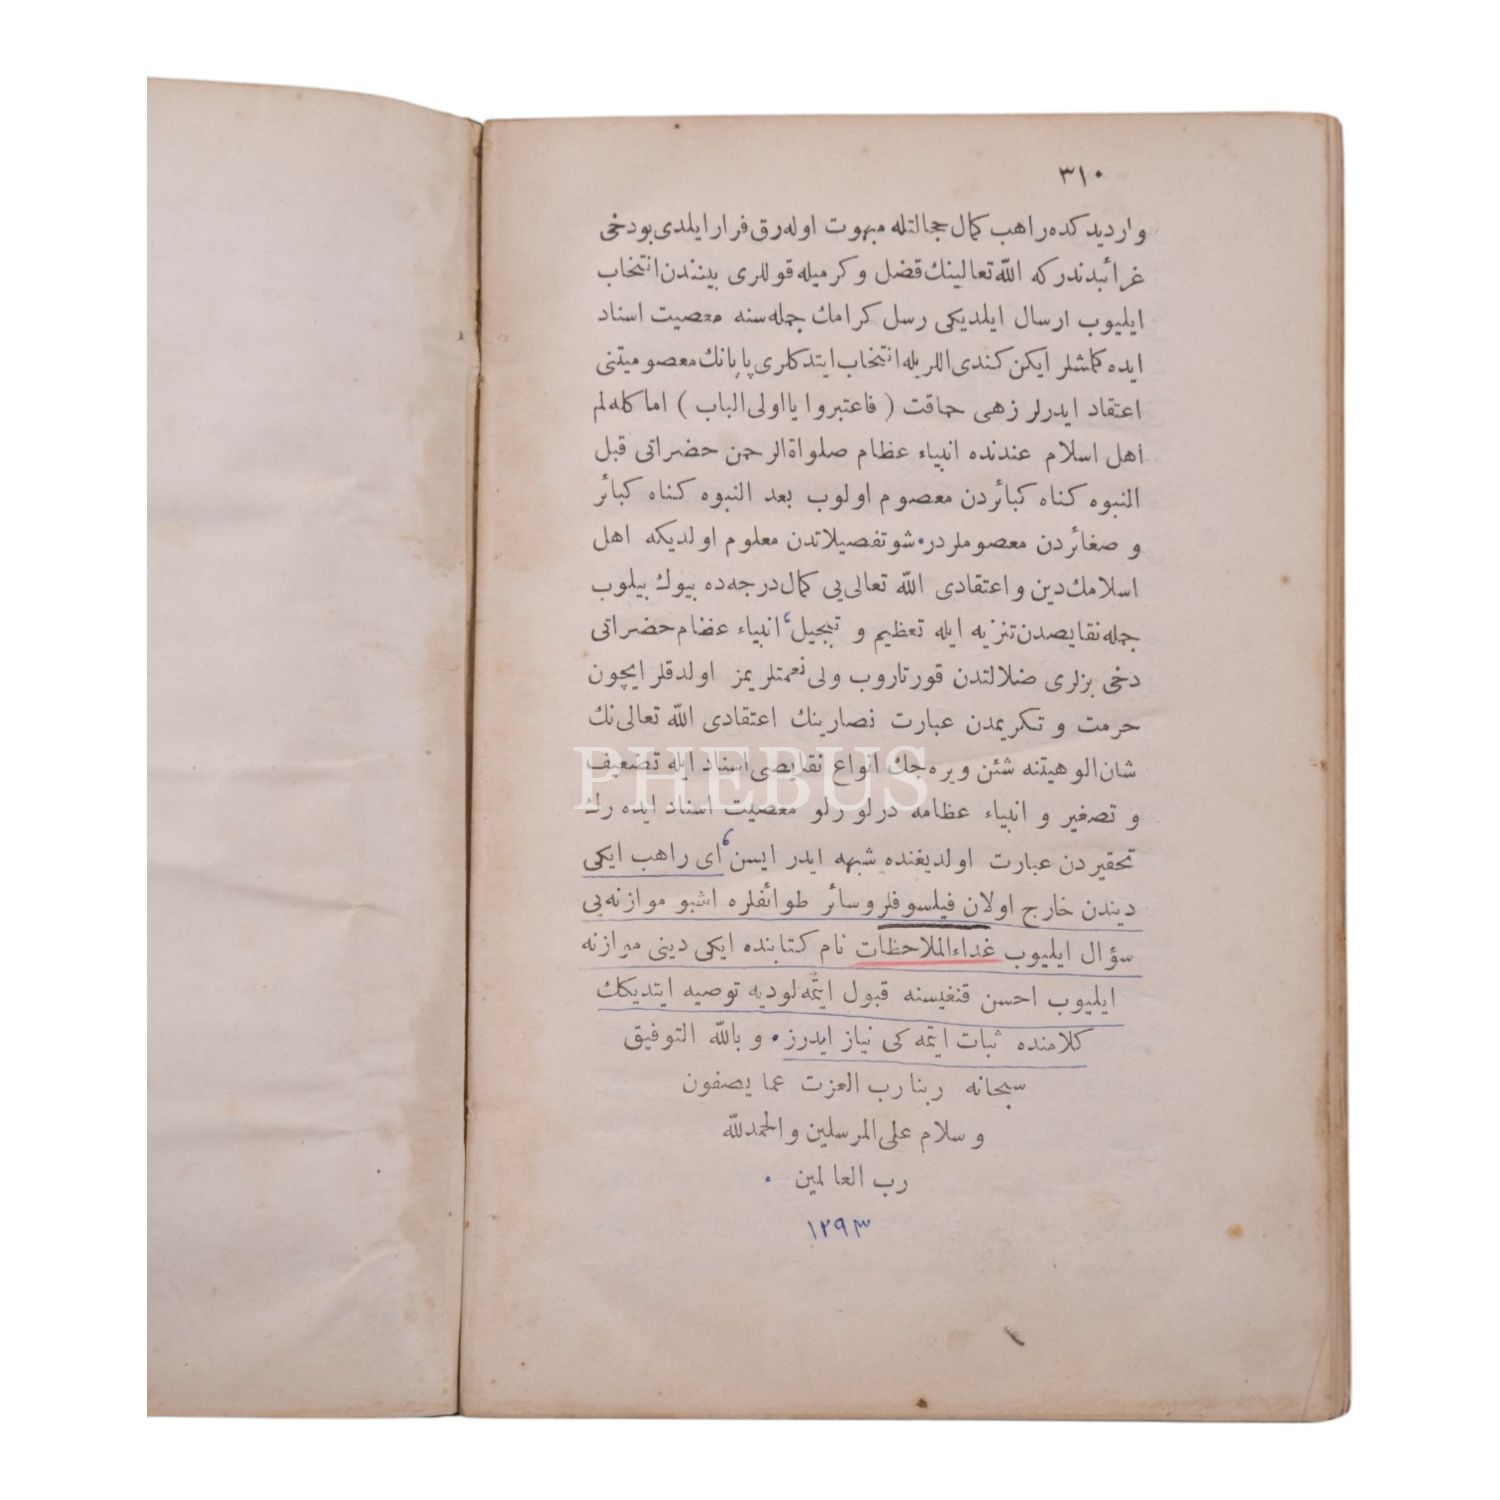 ٣١٠
واردیدکده راهب کمال خجالتله مبهوت اوله‌رق فرار ایلدی بودخی
غرائبدندرکه اللّه تعالینك فضل و کرمیله قوللری بیننده‌ن انتخاب
ایلیوب ارسال ایلدیکی رسل کرامك جمله‌سنه معصیت اسناد
ایده کلمشلر ایکن کندی اللریله انتخاب ایتدکلری پاپانك معصومیتنی
اعتقاد ایدرلر زهی حماقت ( فاعتبروا یااولی الباب ) اما کله‌لم
اهل اسلام عندنده انبیاء عظام صلواة الرحمن حضراتی قبل
النبوه کناه کبائردن معصوم اولوب بعد النبوه کناه کبائر
و صغائردن معصوملردر٠ شو تفصیلاتدن معلوم اولدیکه اهل
اسلامك دین و اعتقادی اللّه تعالی‌یی کمال درجه‌ده بیوك بیلوب
جمله نقایصدن تنزیه ایله تعظیم و تبجیل، انبیاء عظام حضراتی
دخی بزلری ضلالتدن قورتاروب ولی نعمتلریمز اولدقلر ایچون
حرمت و تکریمدن عبارت نصارینك اعتقادی اللّه تعالی نك
شان الوهیتنه شئن ویره‌جك انواع نقایصی اسناد ایله تضعیف
و تصغیر و انبیاء عظامه درلو درلو معصیت اسناد ایده رك
تحقیردن عبارت اولدیغنده شبهه ایدر ایسن، ای راهب ایکی
دیندن خارج اولان فیلسوفلر و سائر طوائفلره اشبو موازنه‌یی
سؤال ایلیوب غداء الملاحظات نام کتابنده ایکی دینی موازنه
ایلیوب احسن قنغیسنه قبول ایتمه‌لودیه توصیه ایتدیکك
کلامنده ثبات ایتمه کی نیاز ایدرز٠ و باللّه التوفیق
سبحانه ربنا رب العزت عما یصفون
و سلام علی المرسلین والحمدللّه
رب العالمین ٠
١٢٩٣
PHEBUS